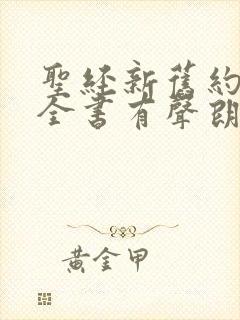 聖経新舊約
全書有聲朗
黃金甲